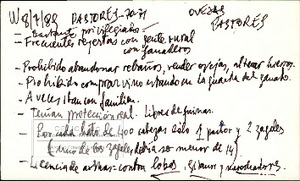 W 8/7/89 PASTORES - 70-71 OVEJAS
PASTORES
- Bastante privilegiados -
- Frecuentes reyertas con gente rural
con ganaderos
- Prohibido abandonar rebaños, vender ovejas,
- Prohibido comprar vino estando en la guarda del ganado.
- A veces iban con familia.
- Tenían protección real. Libres de quintas.
- Por cada hato de 400 cabezas sólo 1 pastor y 2 zagales
(uno de los zagales debía ser menor de 14)
- Licencia de armas: contra lobos, y merodeadores